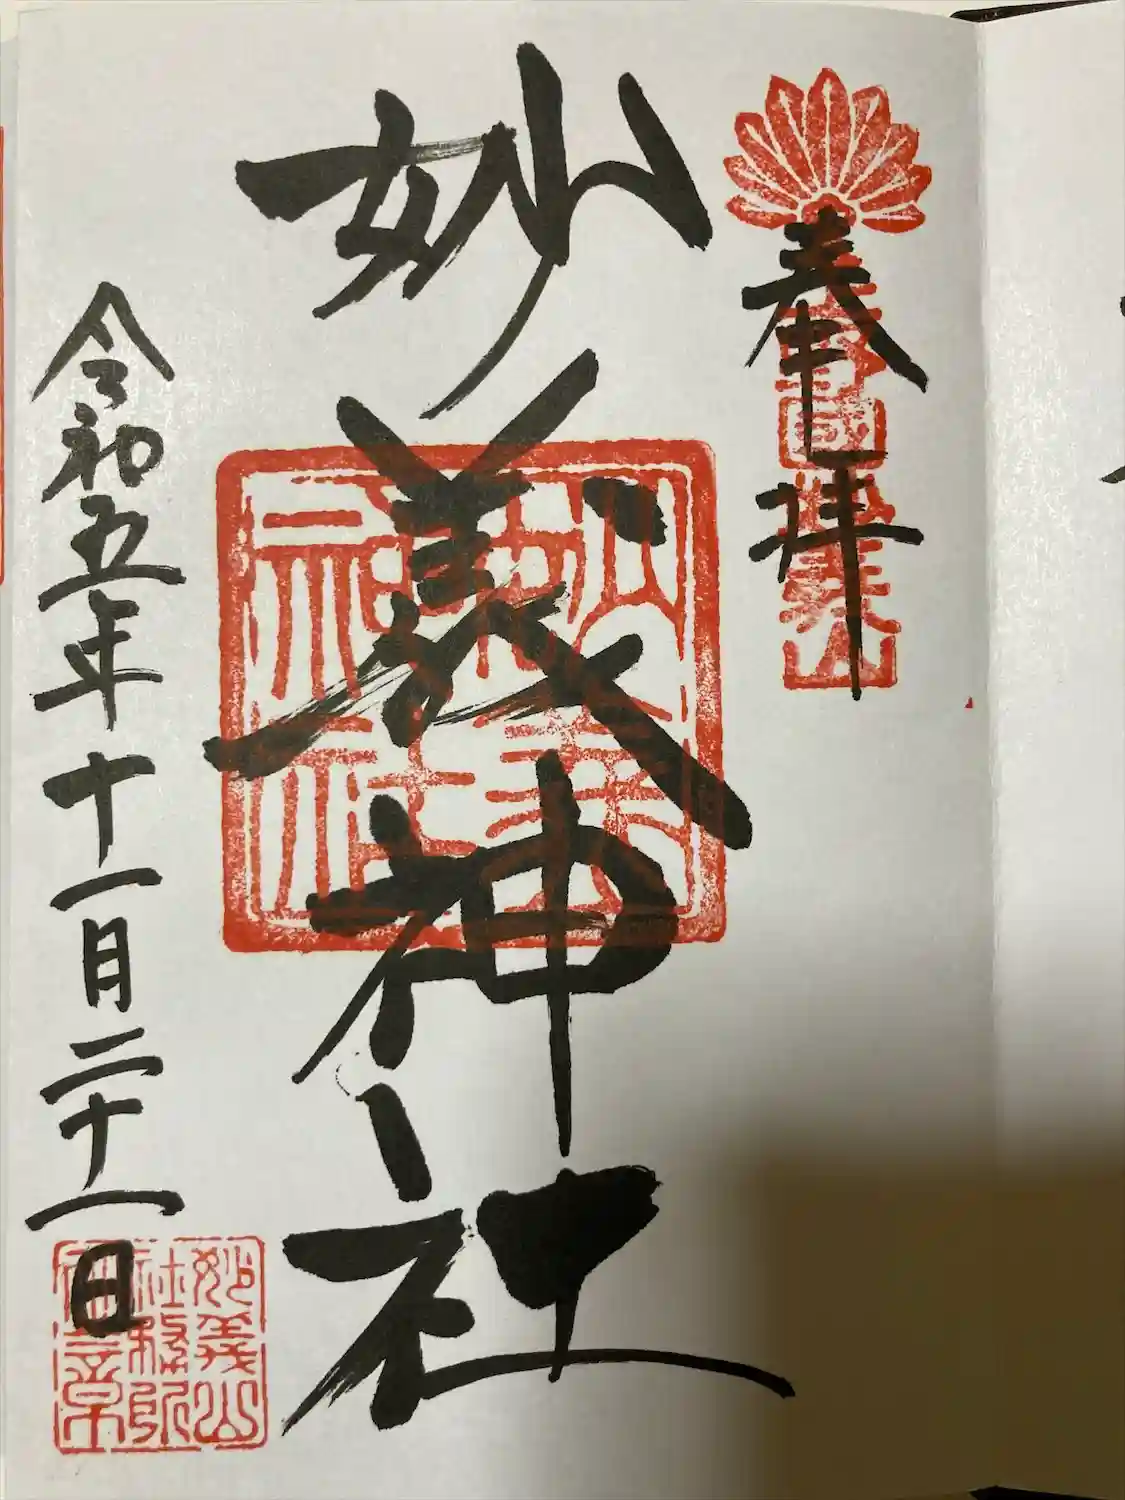 奉拝
上野國妙義山
妙義神社
妙義神社
令和五年十一月二十一日
妙義山
社務所